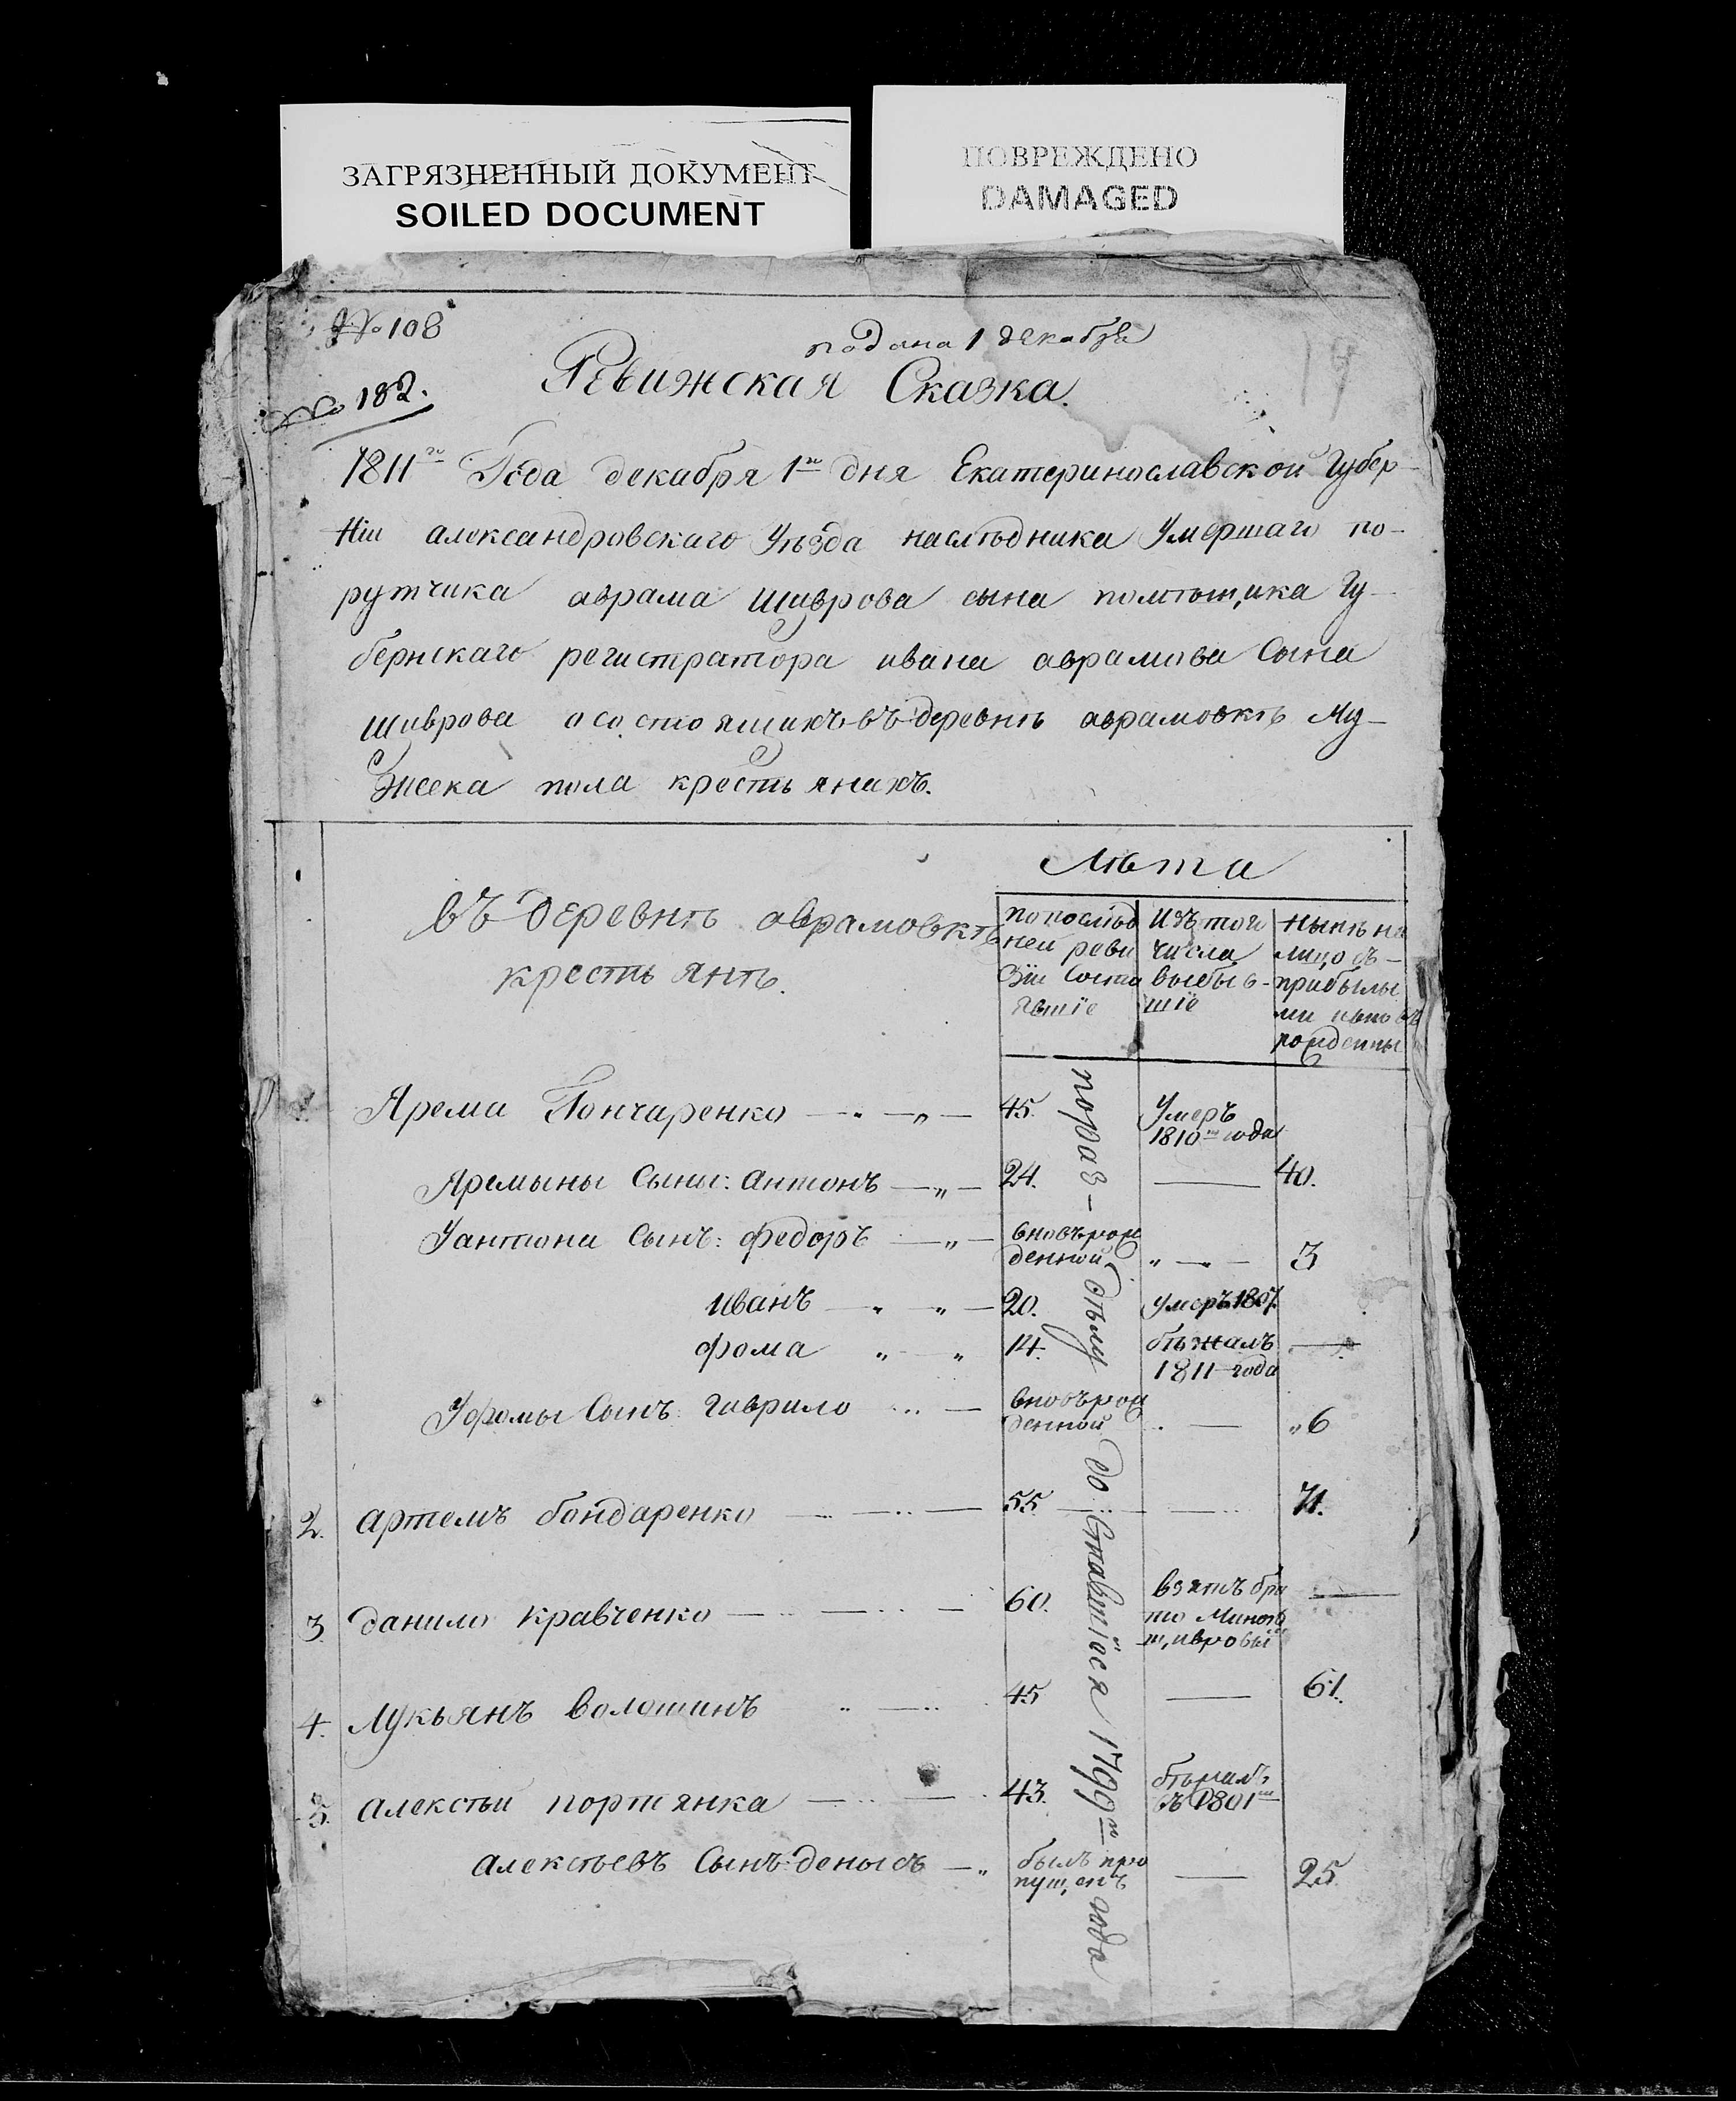 ЗАГРЯЗНЕННЫЙ ДОКУМЕНТ
SOILED DOCUMENT
ПОВРЕЖДЕНО
DAMAGED
№ 108
подана 1 декабря
19
№ 182.
Ревижская Сказка.
1811го Года декабря 1го дня Екатеринославской Губер-
ніи александровскаго Уѣзда наслѣдника Умершаго по-
рутчика аврама шаврова сына помѣщика Гу-
бернскаго регистратора ивана аврамова Сына
шаврова о состоящихъ въ деревнѣ аврамовкѣ Му-
жеска пола крестьянахъ.
Лѣта
въ деревнѣ аврамовкѣ
крестьянъ.
по послѣд
ней реви
зіи Состо
явшіе
Изъ того
числа
выбыв-
шіе
Нынѣ на
лицо съ
прибылы
ми и вновь
рожденны
Ярема Гончаренко 45. Умеръ
1810го года
Яремыны Сыны: антонъ 24. 40.
У антона Сынъ: федоръ вновърож
денной 3
иванъ 20. умеръ 1807.
фома 14. бѣжалъ
1811 года
У фомы Сынъ: гаврило вновърож
денной 6
2. артемъ бондаренко 55 71.
3. данило кравченко 60. взятъ бра
то
4. Лукьянъ волошинъ 45 61.
5. алексѣй портянка 43. бѣжалъ
въ 1801м
алексѣевъ Сынъ: денысъ былъ про
пущенъ 25.
по раз-дѣлу до Ставшіеся 1799го года